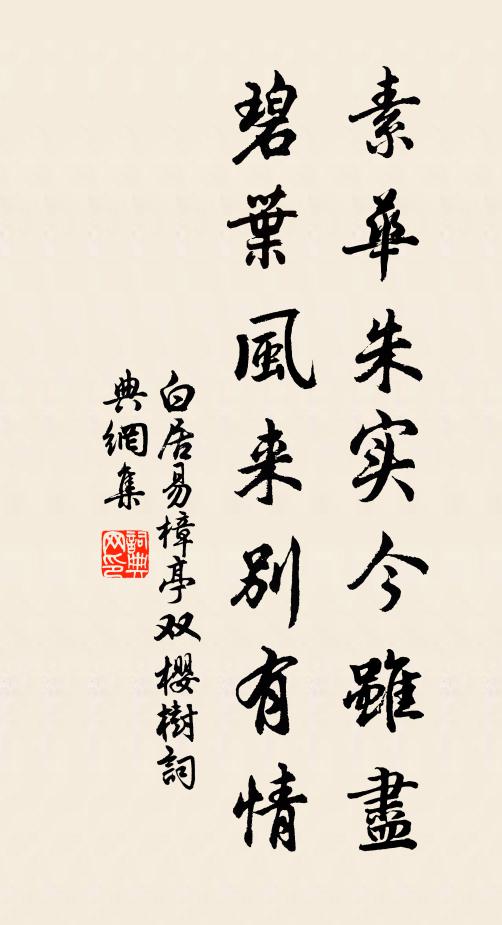 素華朱实今雖盡
碧葉風来別有情
白居易樟亭双櫻樹詞
典網集
詞典网印